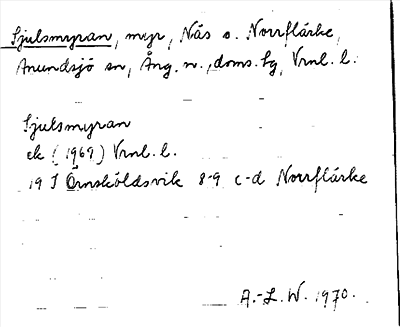 Sjulsmyran, myr, Näs o. Norrflärke,
Anundsjö sn, Ång. n., doms. fg, Vrnl. l.
Sjulsmyran
ek (1969) Vrnl. l.
19 J Örnsköldsvik 8-9 c-d Norrflärke
A.-L. W. 1970.